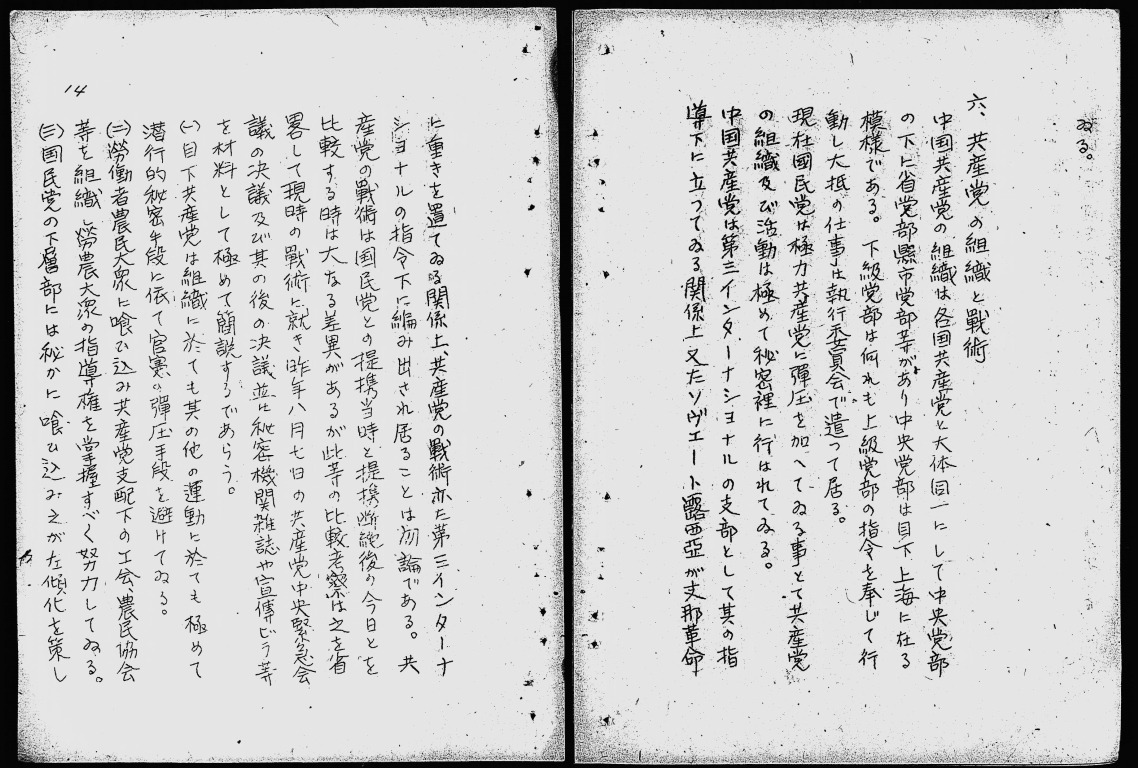 ゐる。
六、共産党の組織と戰術
中国共産党の組織は各国共産党と大体同一にして中央党部
の下に省党部縣市党部等があり中央党部は目下上海に在る
模様である。下級党部は何れも上級党部の指令を奉じて行
動し大抵の仕事は執行委員会で遣って居る。
現在国民党は極力共産党に彈圧を加へてゐる事とて共産党
の組織及び活動は極めて秘密裡に行はれてゐる。
中国共産党は第三インターナショナルの支部として其の指
導下に立ってゐる関係上又たソヴエート露西亞が支那革命
14
に重きを置てゐる関係上、共産党の戰術亦た第三インターナ
ショナルの指令下に編み出され居ることは勿論である。共
産党の戰術は国民党との提携当時と提携断絶後の今日とを
比較する時は大なる差異があるが此等の比較考察は之を省
畧して現時の戰術に就き昨年八月七日の共産党中央緊急会
議の決議及び其の後の決議並に秘密機関雑誌や宣傳ビラ等
を材料として極めて簡説するであらう。
(一)目下共産党は組織に於ても其の他の運動に於ても極めて
潜行的秘密手段に依て官憲の彈圧手段を避けてゐる。
(二)勞働者農民大衆に喰ひ込み共産党支配下の工会、農民協会
等を組織し勞農大衆の指導権を掌握すべく努力してゐる。
(三)国民党の下層部には秘かに喰ひ込み之が左傾化を策し